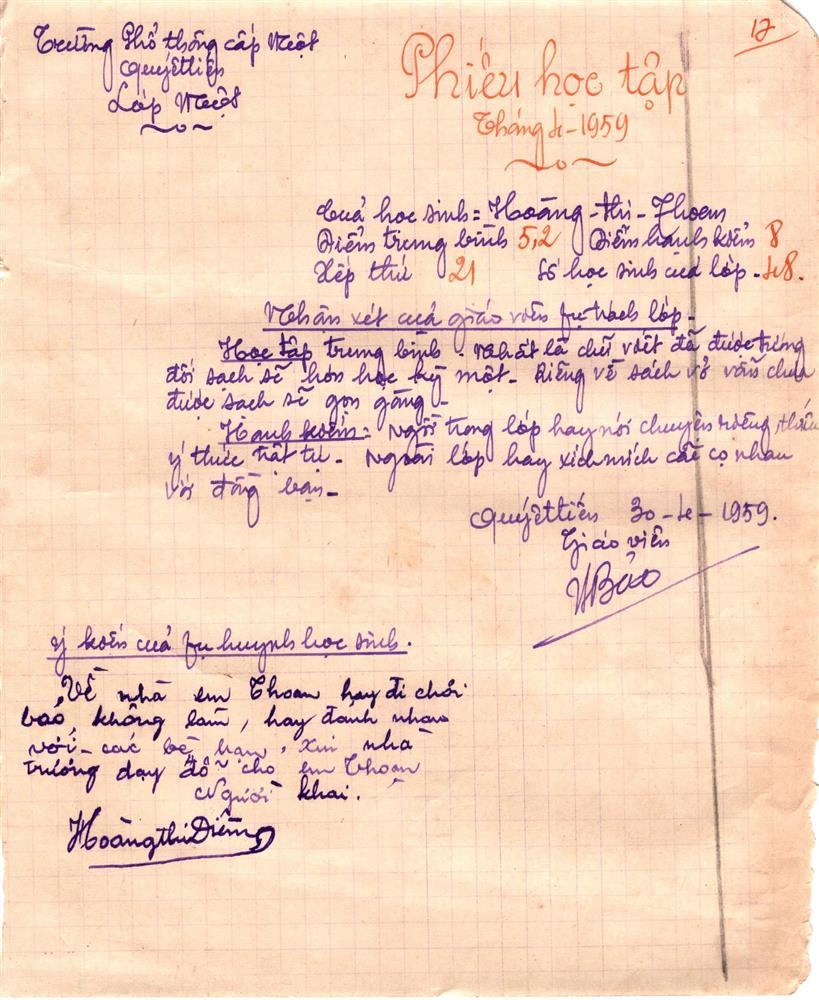 Trường Phổ thông cấp Một
Quyết tiến
Lớp Một
12
Phiếu học tập
Tháng 4-1959
Cuả học sinh = Hoàng-thị-Thoan
Điểm trung bình 5,2 Điểm hạnh kiểm 8
Xếp thứ 21 Số học sinh cuả lớp - 48.
Nhận xét cuả giáo viên fụ trách lớp-
Học tập trung bình. Nhất là chữ viết đã được tương
đối sạch sẽ hơn học kỳ một- Riêng về sách vở vẫn chưa
được sạch sẽ gọn gàng-
Hạnh kiểm = Ngồi trong lớp hay nói chuyện riêng, thiếu
ý thức trật tự- Ngoài lớp hay xích mích cãi cọ nhau
với đồng bạn-
Quyết tiến 30-4-1959.
Giáo viên
VBảo
ý kiến cuả fụ huynh học sinh.
Về nhà em Thoan hay đi chơi
baỏ, không làm, hay đánh nhau
với- các bè bạn, xin nhà
trường dạy đỗ cho em Thoan
Người khai.
Hoàng thị Diễm